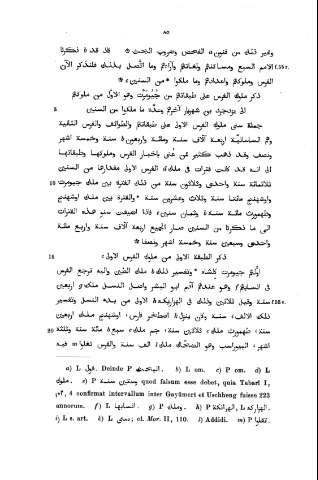 ٨٥
وغير ذلك من فنون الفحص وضروب البحث * قد قدمنا ذكر
الامم السبع ومساكنهم ولغاتهم وآرائهم وما اتّصل بذلك فلنذكر الآن
الفرس وملوكهم واعدادهم وما ملكوا من السنين *
ذكر ملوك الفرس على طبقاتهم من جيومرت وهو الاول من ملوكهم
5 الى يزدجرد بن شهريار آخرهم وعدّة ما ملكوا من السنين
جملة سنى ملوك الفرس الاول على طبقاتهم والطوائف والفرس الثانية
وهم الساسانيّة اربعة آلاف سنة ومائة واربعين سنة وخمسة اشهر
ونصف وقد ذهب كثير ممن عُنى باخبار الفرس وملوكها وطبقاتها
الى انه قد كانت فترات فى ملك الفرس الاول مقدارها من السنين
10 ثلاثمائة سنة واحدى وثلاثون سنة من ذلك الفترة بين ملك جيومرت
واوشهنج مائتا سنة وثلاث وعشرين سنة والفترة بين ملك اوشهنج
وطهمورث مائة سنة وثمان سنين فاذا اضيفت سنو هذه الفترات
الى ما ذكرنا من السنين صار الجميع اربعة آلاف سنة واربع مائة
واحدى وسبعين سنة وخمسة اشهر ونصفا *
15 ذكر الطبقة الاولى من ملوك الفرس الاول
اوّلهم جيومرت كلشاه وتفسير ذلك ملك الطين واليه ترجع الفرس
فى انسابها وهو عندهم آدم ابو البشر واصل النسل ملك اربعين
سنة وقيل ثلاثين وذلك فى الهزاربكة الاول من بدء النسل وتفسير
ذلك الالف سنة وكان ينزل اصطخر فارس، اوشهنج ملك اربعين
20 سنة، طهمورث ملك ثلاثين سنة، جم ملك سبع مائة سنة وثلثة
اشهر، البيوراسب وهو الضحّاك ملك الف سنة والفرس تغلوا فيه
a) L قول. Deinde P الباحث. b) L om. c) P om. d) L
ملوك. e) P وستين سنة quod falsum esse debet, quia Tabarî I,
confirmat intervallum inter Gayûmert et Uscheng fuisse 223
annorum. f) L انسابها. g) P وملك. h) P الهزانكة, L الهزاركه.
i) L s. art. k) L دسى; cf. Mor. II, 110. l) Addidi. m) P تغلبوا.